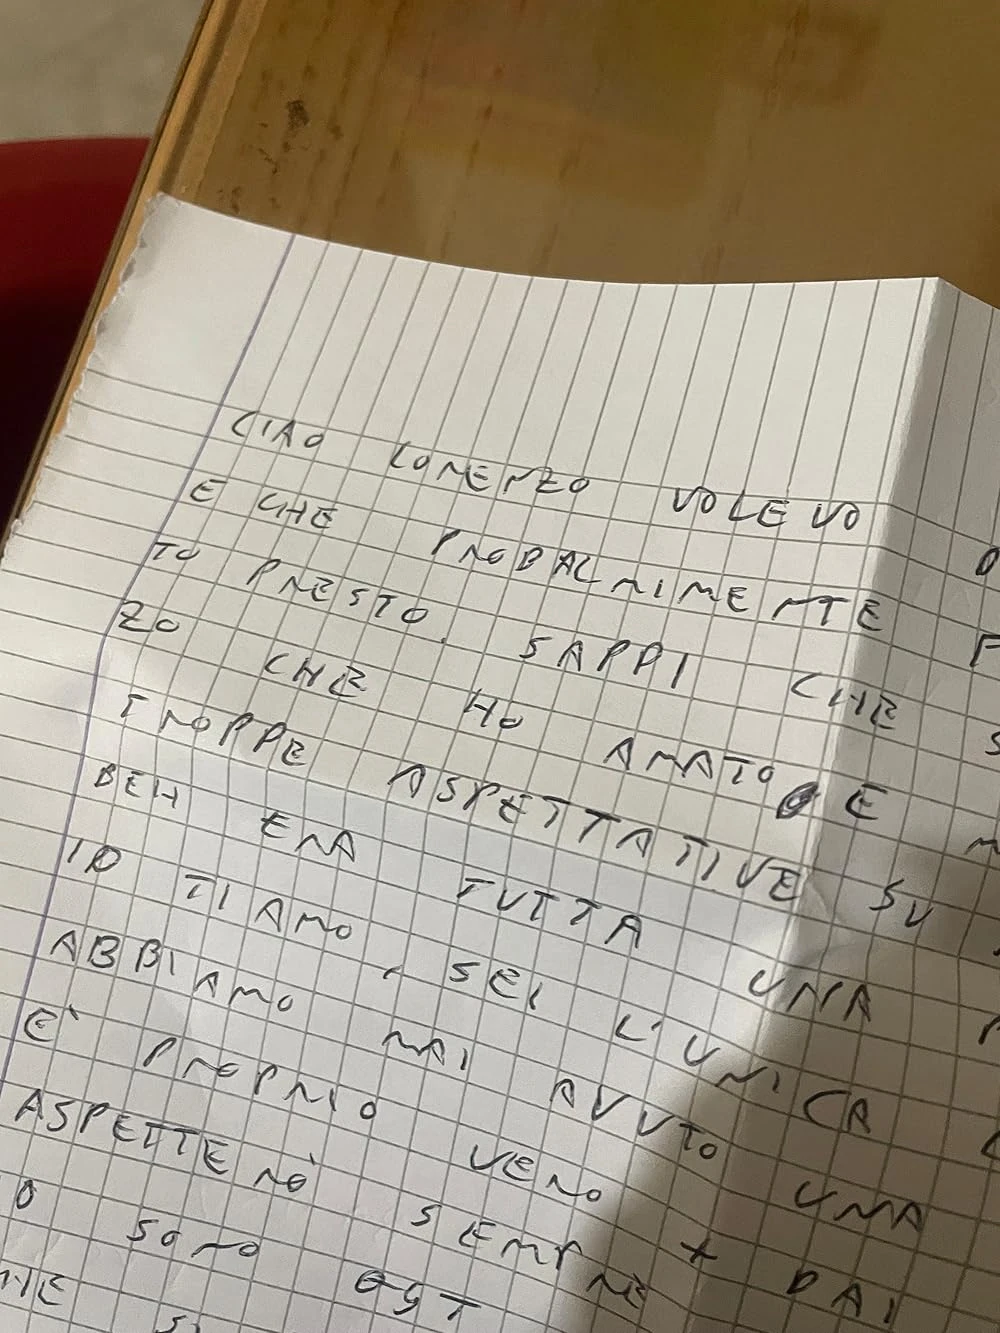 CIAO LORENZO VOLEVO
E CHE PROBALMIMENTE
TO PRESTO. SAPPI CHE
ZO CHE HO AMATO E
TROPPE ASPETTATIVE SU
BEH ERA TUTTA UNA
IO TI AMO, SEI L'UNICA
ABBIAMO MAI AVUTO UNA
E' PROPRIO VERO + DAI
ASPETTERÒ SEMPRE
O SONO
HE